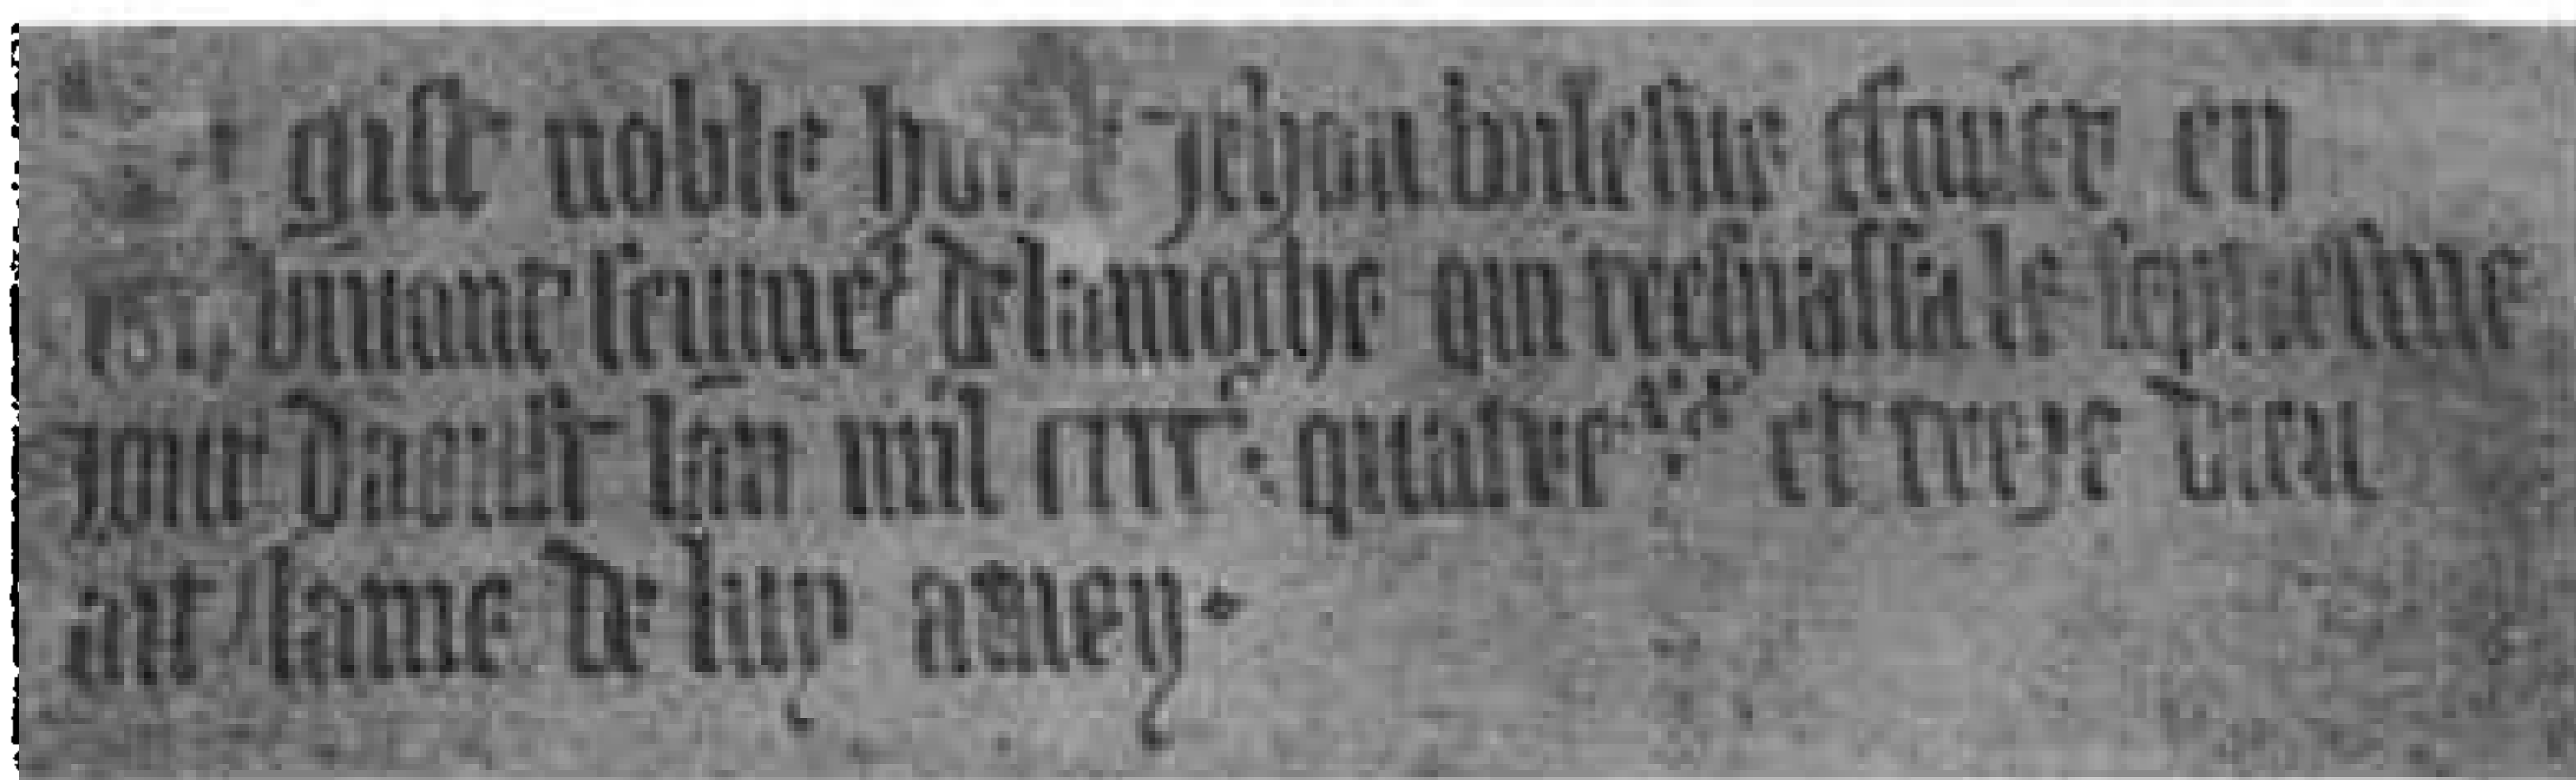 gist noble jehan escuier en
vivant seigneur de lamothe qui trespassa le septiesme
jour dapvril lan mil cccc quatre et treze dieu
ait lame de luy amen